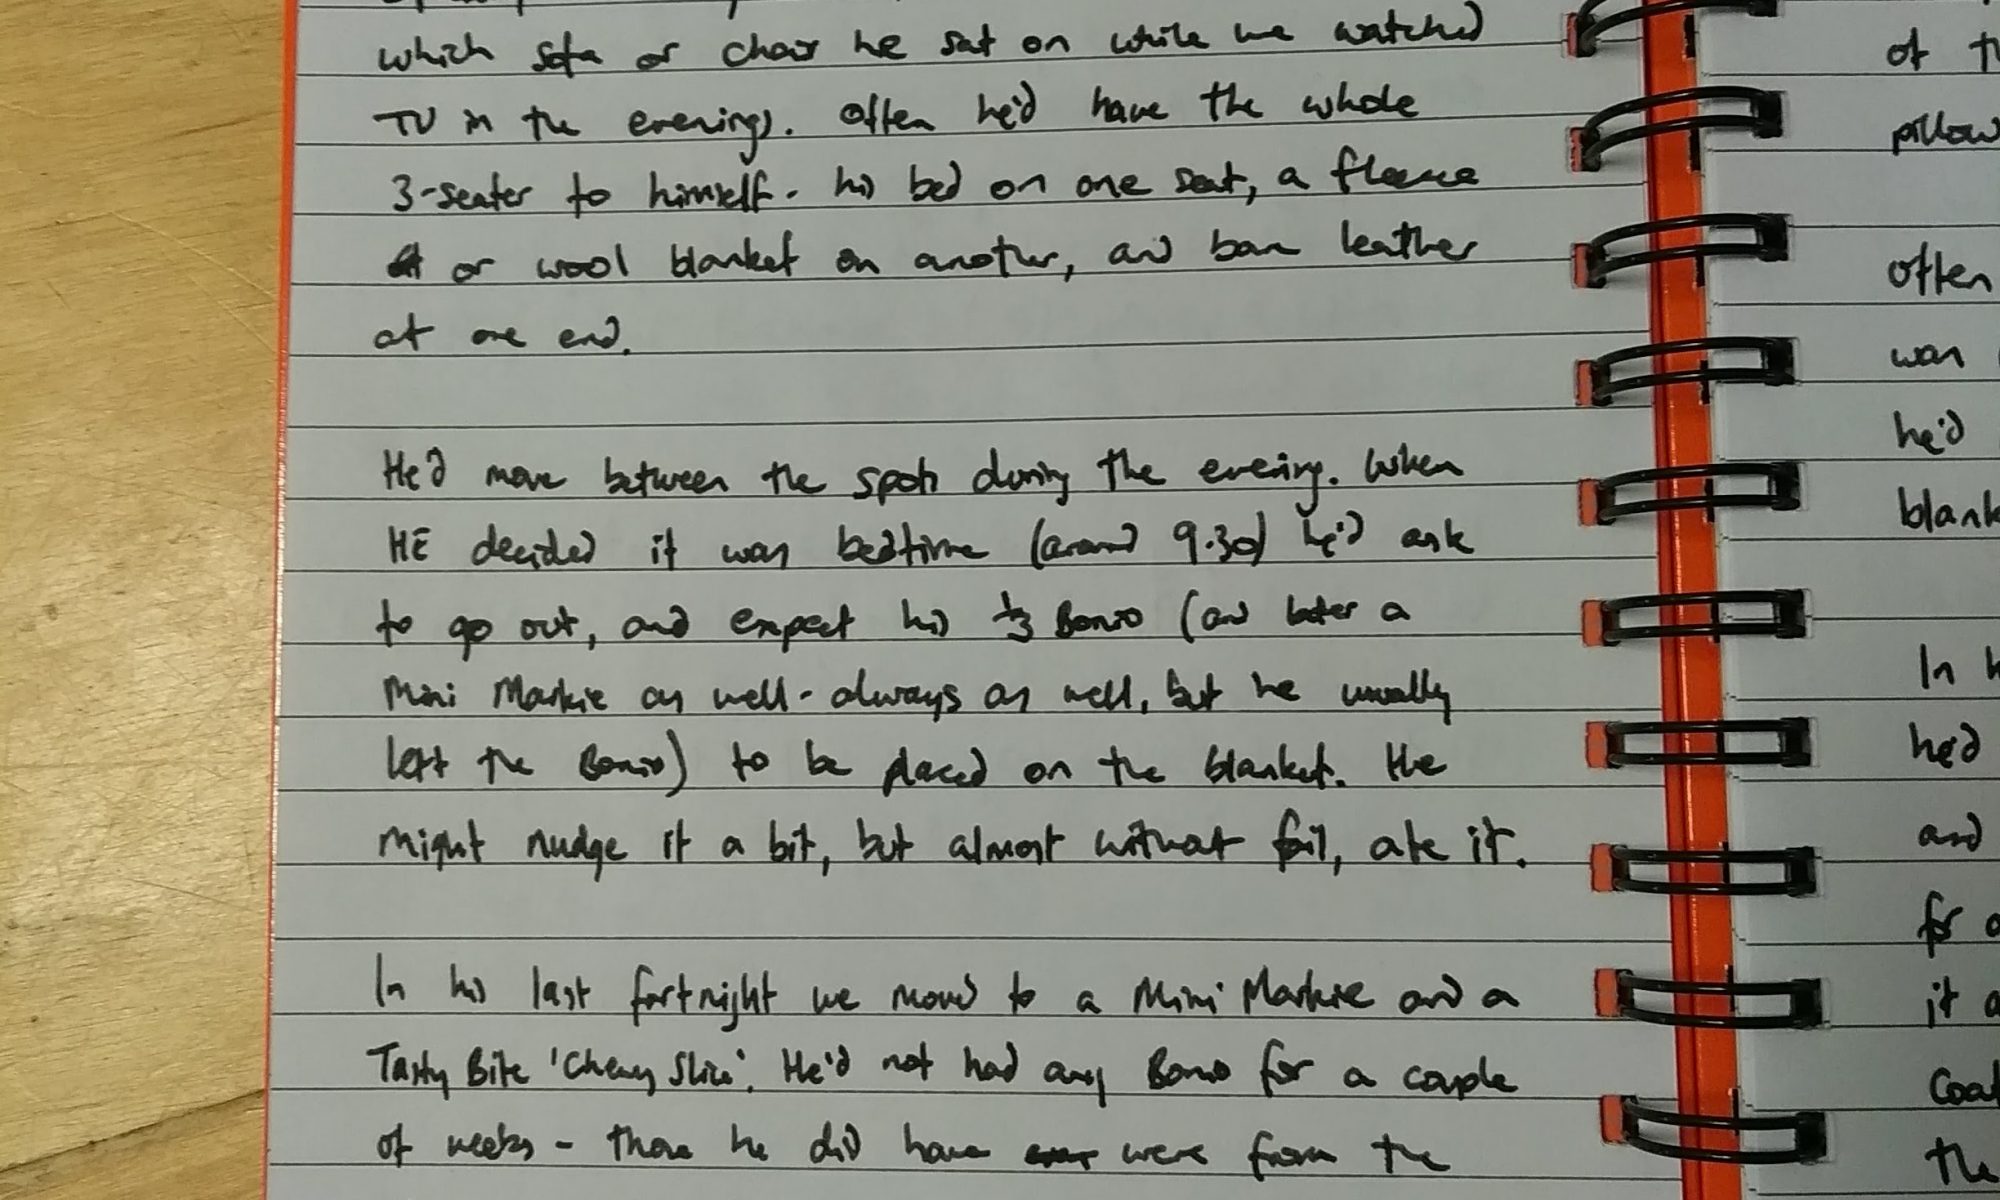 which sofa or chair he sat on while we watched
TV in the evenings. Often he'd have the whole
3-seater to himself - his bed on one seat, a fleece
or wool blanket on another, and bare leather
at one end.
He'd move between the spots during the evening. When
HE decided it was bedtime (around 9.30) he'd ask
to go out, and expect his 1/3 Bonio (and later a
Mini Markie as well - always as well, but he usually
left the Bonio) to be placed on the blanket. He
might nudge it a bit, but almost without fail, ate it.
In his last fortnight we moved to a Mini Markie and a
Tasty Bite 'Chewy Slice'. He'd not had any Bonio for a couple
of weeks - those he did have were from the
of
pillow
often
was
he'd
blank
In
he'd
and
for
it a
Coa
the